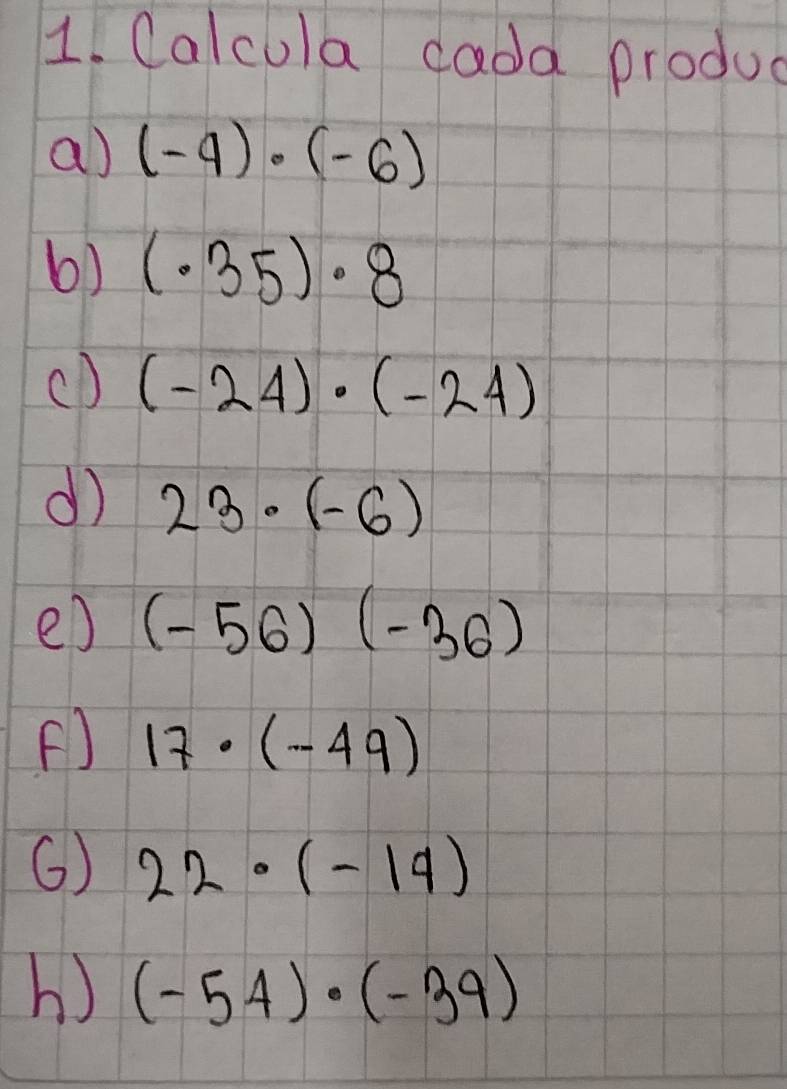 1. Calcula cada produc
a) (-9) · (-6)
b) (·35) · 8
c) (-24) · (-24)
d) 23 · (-6)
e) (-56) (-36)
F) 17 · (-49)
G) 22 · (-19)
h) (-54) · (-39)